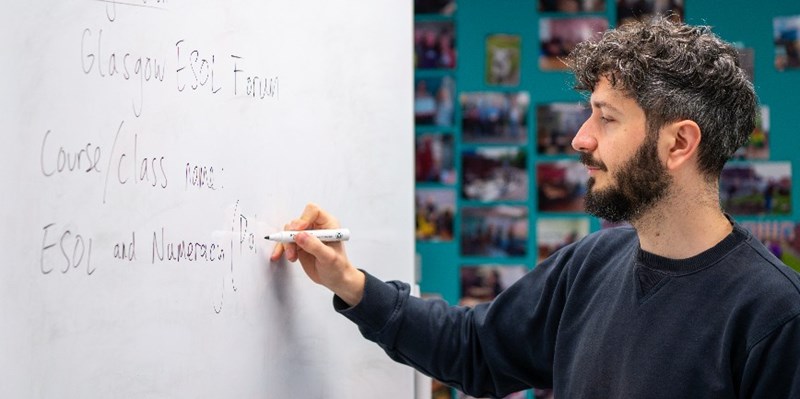 Glasgow ESOL Forum
Course/class name:
ESOL and Numeracy (Pa